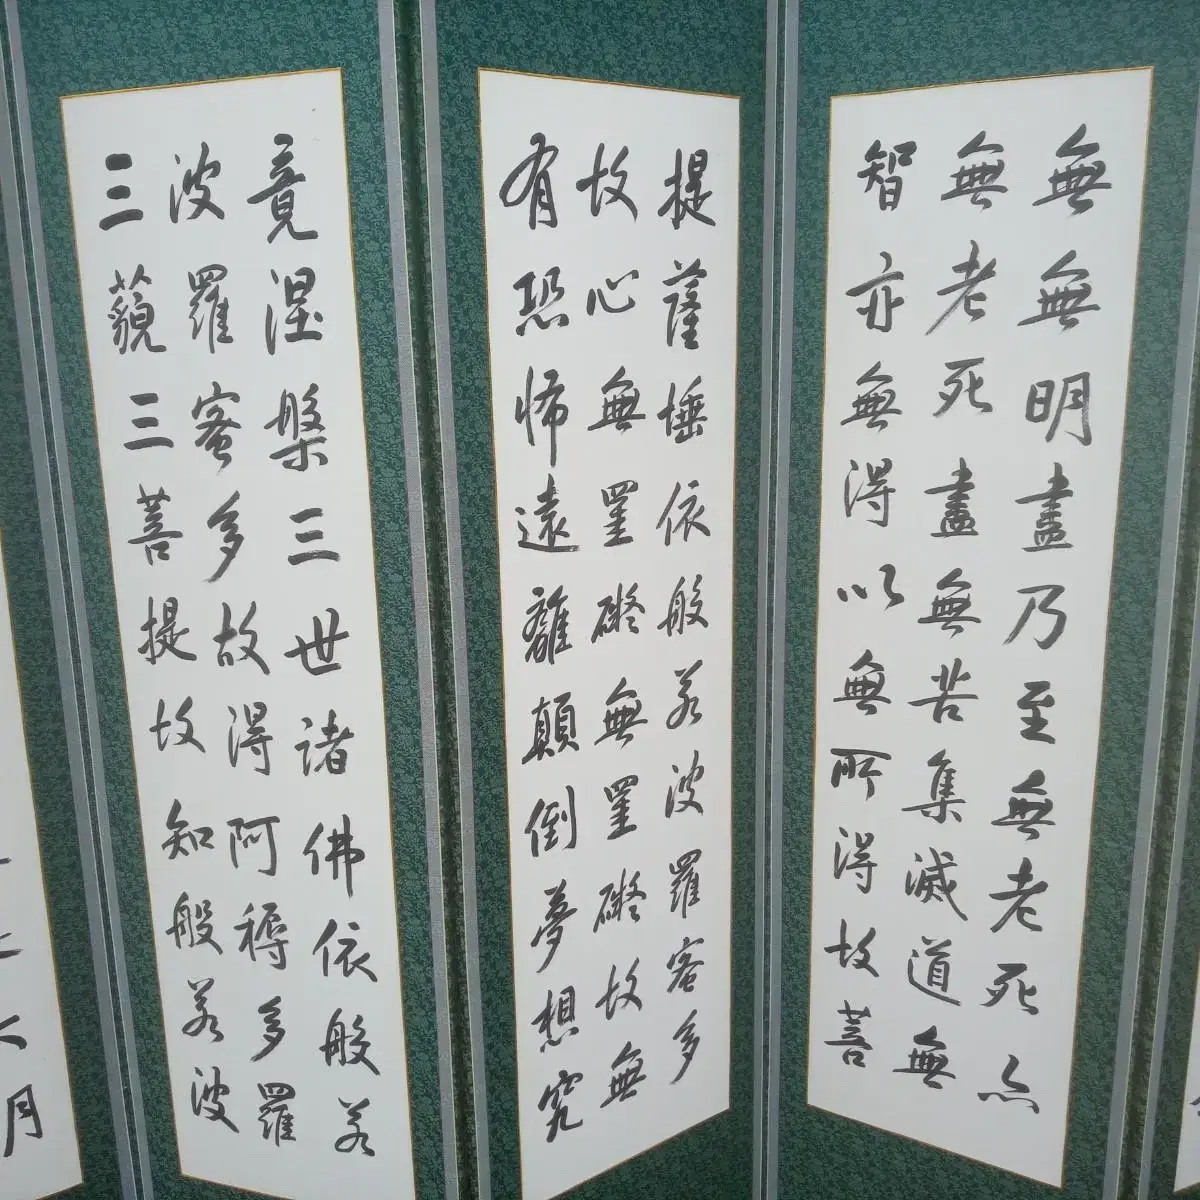 無無明盡乃至無老死亦
無老死盡無苦集滅道無
智亦無得以無所得故菩
提薩埵依般若波羅蜜多
故心無罣礙無罣礙故無
有恐怖遠離顛倒夢想究
竟涅槃三世諸佛依般若
波羅蜜多故得阿耨多羅
三藐三菩提故知般若波